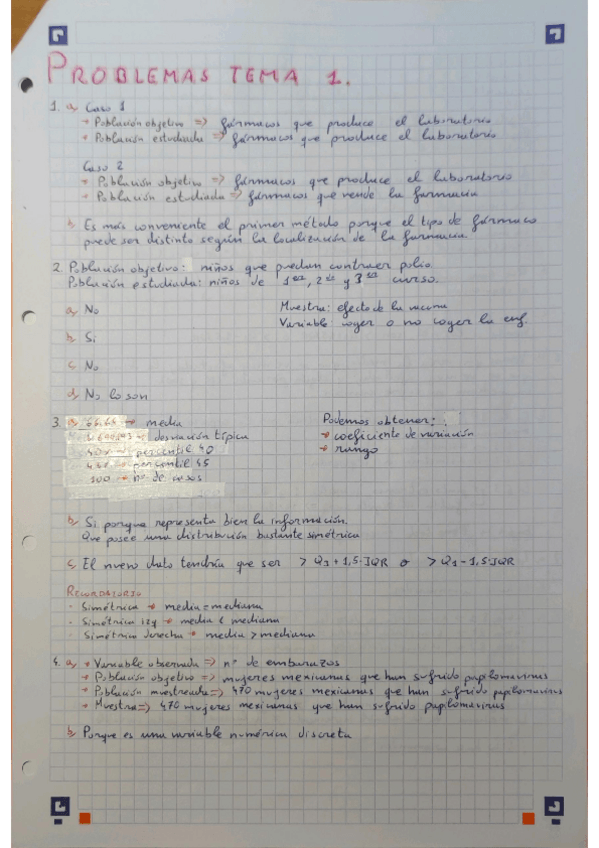 PROBLEMAS TEMA 1.
1. a) Caso 1
→ Población objetivo => fármacos que produce el laboratorio
→ Población estudiada => fármacos que produce el laboratorio
Caso 2
→ Población objetivo => fármacos que produce el laboratorio
→ Población estudiada => fármacos que vende la farmacia
b) Es más conveniente el primer método porque el tipo de fármaco
puede ser distinto según la localización de la farmacia.
2. Población objetivo: niños que puedan contraer polio.
Población estudiada: niños de 1er, 2º y 3er curso.
a) No
Muestra: efecto de la vacuna
Variable coger o no coger la enf.
b) Si
c) No
d) No lo son
3. a) 66.65 → media
→ desviación típica
→ percentil 40
→ percentil 45
100 → nº de casos
Podemos obtener:
→ coeficiente de variación
→ rango
b) Si porque representa bien la información.
Que posee una distribución bastante simétrica
c) El nuevo dato tendría que ser > Q3 + 1,5·IQR o > Q1 - 1,5·IQR
RECORDATORIO
- Simétrica → media = mediana
- Simétrica izq → media < mediana
- Simétrica derecha → media > mediana
4. a) → Variable observada => nº de embarazos
→ Población objetivo => mujeres mexicanas que han sufrido papilomavirus
→ Población muestreada => 470 mujeres mexicanas que han sufrido papilomavirus
→ Muestra => 470 mujeres mexicanas que han sufrido papilomavirus
b) Porque es una variable numérica discreta